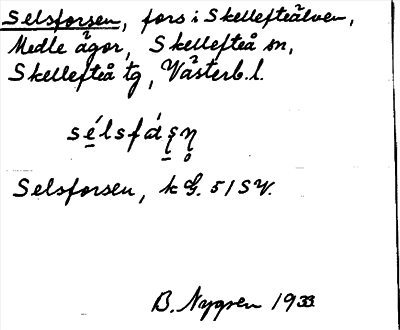 Selsforsen, fors i Skellefteälven,
Medle ägor, Skellefteå sn,
Skellefteå tg, Västerb. l.
Selsforsen, k G. 51 SV.
B. Nygren 1933